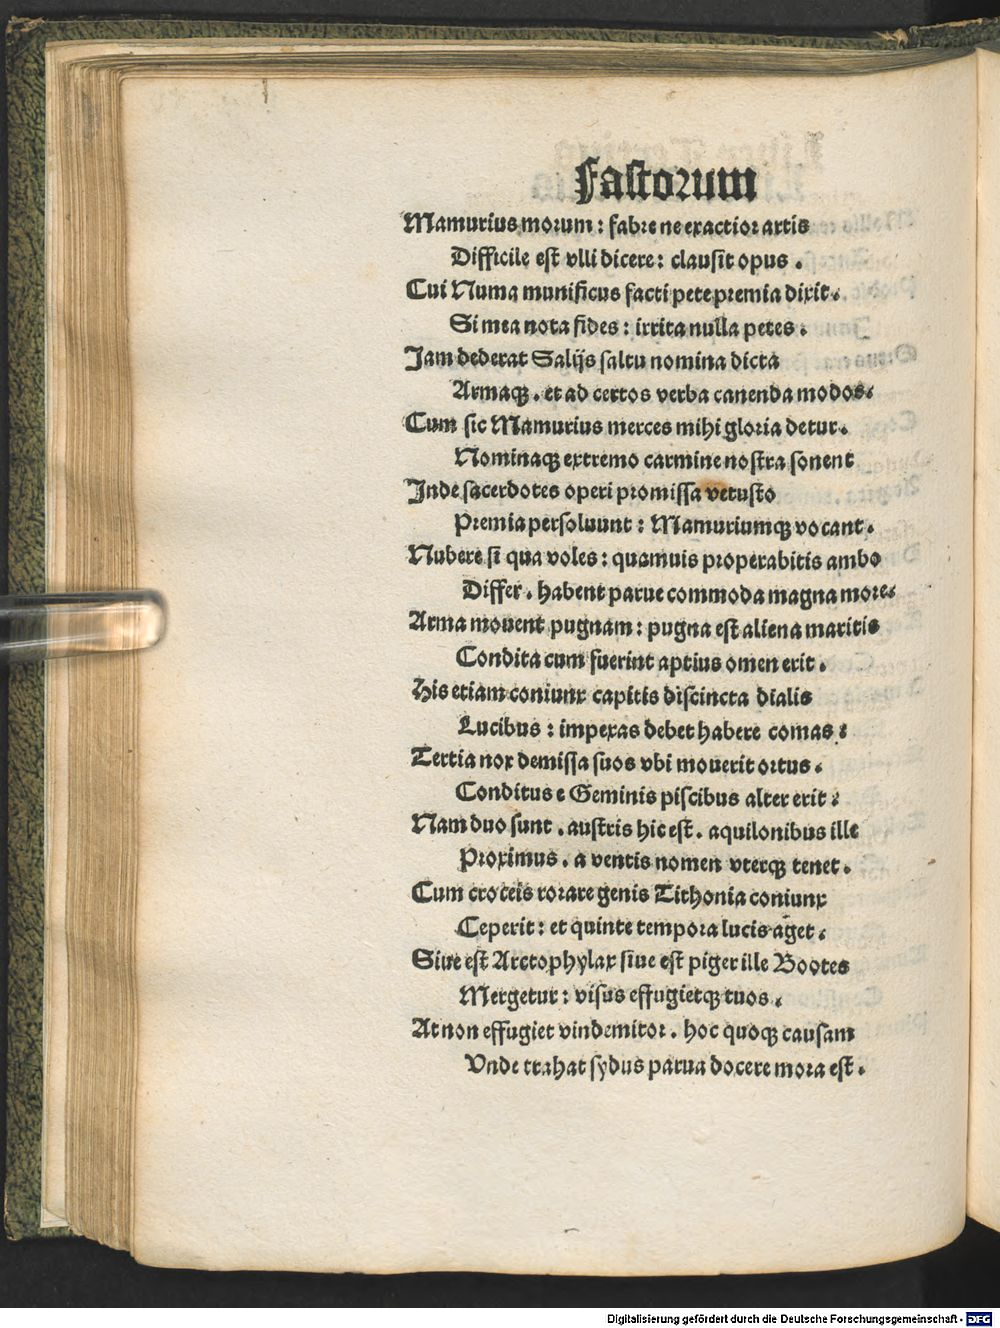 Fastorum
Mamurius morum: fabre ne exactior artis
Difficile est vlli dicere: clausit opus.
Cui Numa munificus facti pete premia dixit.
Si mea nota fides: irrita nulla petes.
Jam dederat Salijs saltu nomina dicta
Armaqꝫ. et ad certos verba canenda modos.
Cum sic Mamurius merces mihi gloria detur.
Nominaqꝫ extremo carmine nostra sonent
Inde sacerdotes operi promissa vetusto
Premia persoluunt: Mamuriumqꝫ vocant.
Nubere si qua voles: quamuis properabitis ambo
Differ. habent parue commoda magna more.
Arma mouent pugnam: pugna est aliena maritis
Condita cum fuerint aptius omen erit.
His etiam coniunx capitis discincta dialis
Lucibus: impexas debet habere comas:
Tertia nox demissa suos vbi mouerit ortus.
Conditus e Geminis piscibus alter erit:
Nam duo sunt. austris hic est. aquilonibus ille
Proximus. a ventis nomen vterqꝫ tenet.
Cum croceis rorare genis Tithonia coniunx
Ceperit: et quinte tempora lucis aget.
Siue est Arctophylax siue est piger ille Bootes
Mergetur: visus effugietqꝫ tuos.
At non effugiet vindemitor. hoc quoqꝫ causam
Vnde trahat sydus parua docere mora est.
Digitalisierung gefördert durch die Deutsche Forschungsgemeinschaft - DFG